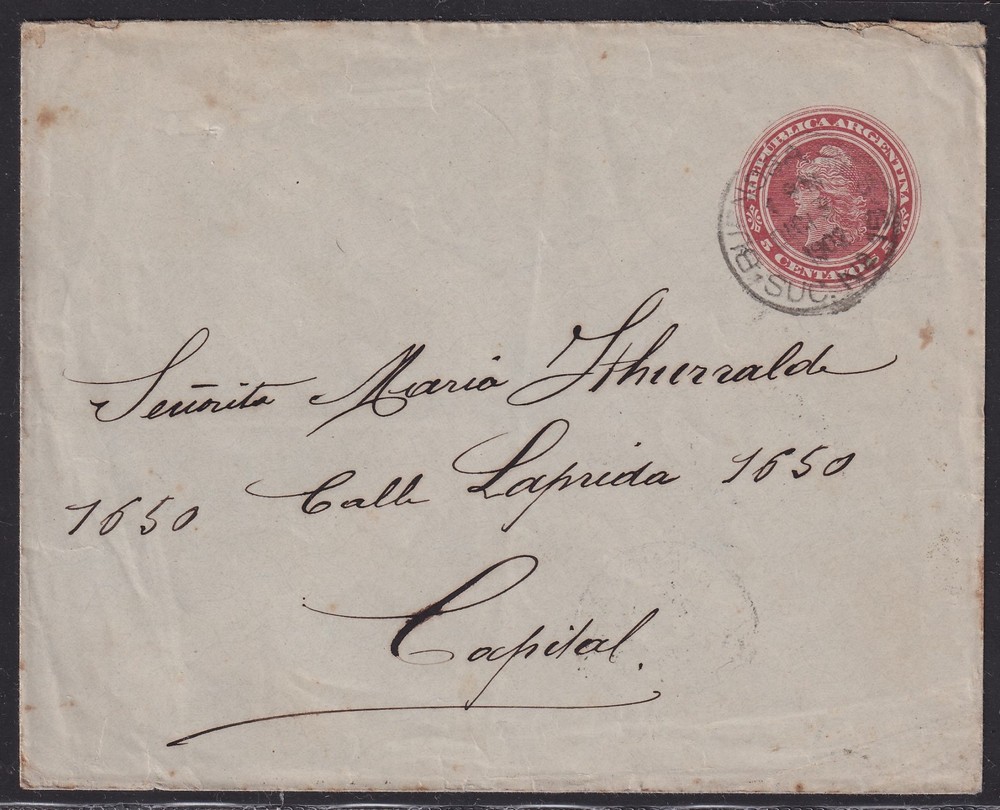 REPÚBLICA ARGENTINA
5 CENTAVOS 5
SUC. Nº
Señorita Maria Ithurralde
1650 Calle Laprida 1650
Capital.